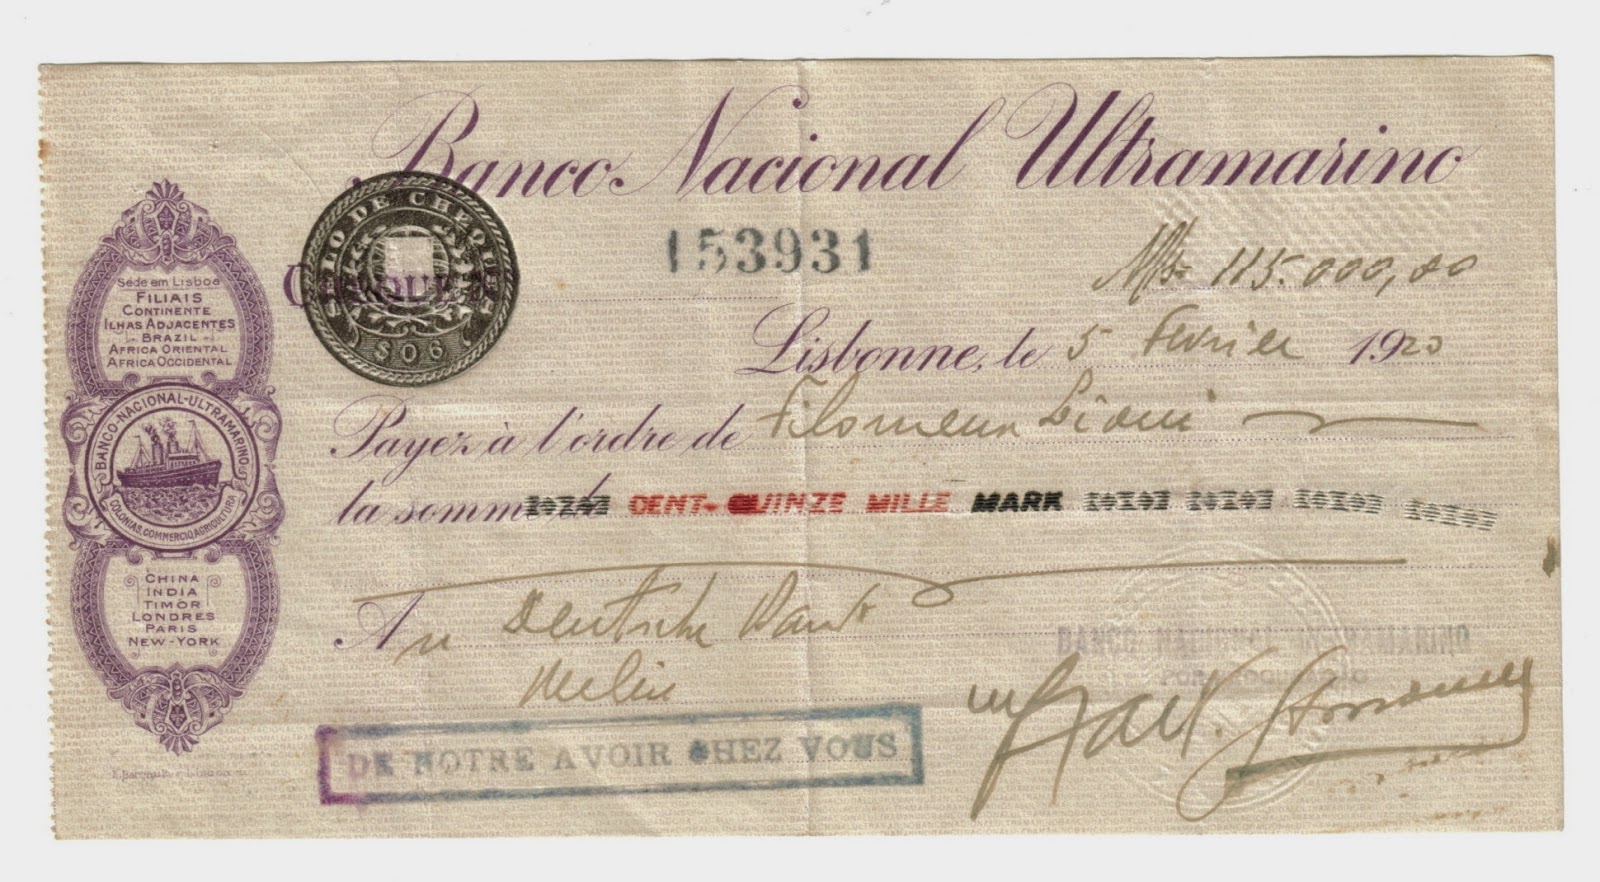 Banco Nacional Ultramarino
SELO DE CHEQUES
S06
153931
115.000,00
Lisbonne, le 5 Février 1920
Payez à l'ordre de Filomena
la somme de CENT-QUINZE MILLE MARK
Au Deutsche Bank
DE NOTRE AVOIR CHEZ VOUS
BANCO NACIONAL ULTRAMARINO
Séde em Lisboa
FILIAIS
CONTINENTE
ILHAS ADJACENTES
BRAZIL
AFRICA ORIENTAL
AFRICA OCCIDENTAL
BANCO-NACIONAL-ULTRAMARINO
COLONIAS, COMMERCIO, AGRICULTURA
CHINA
INDIA
TIMÔR
LONDRES
PARIS
NEW-YORK